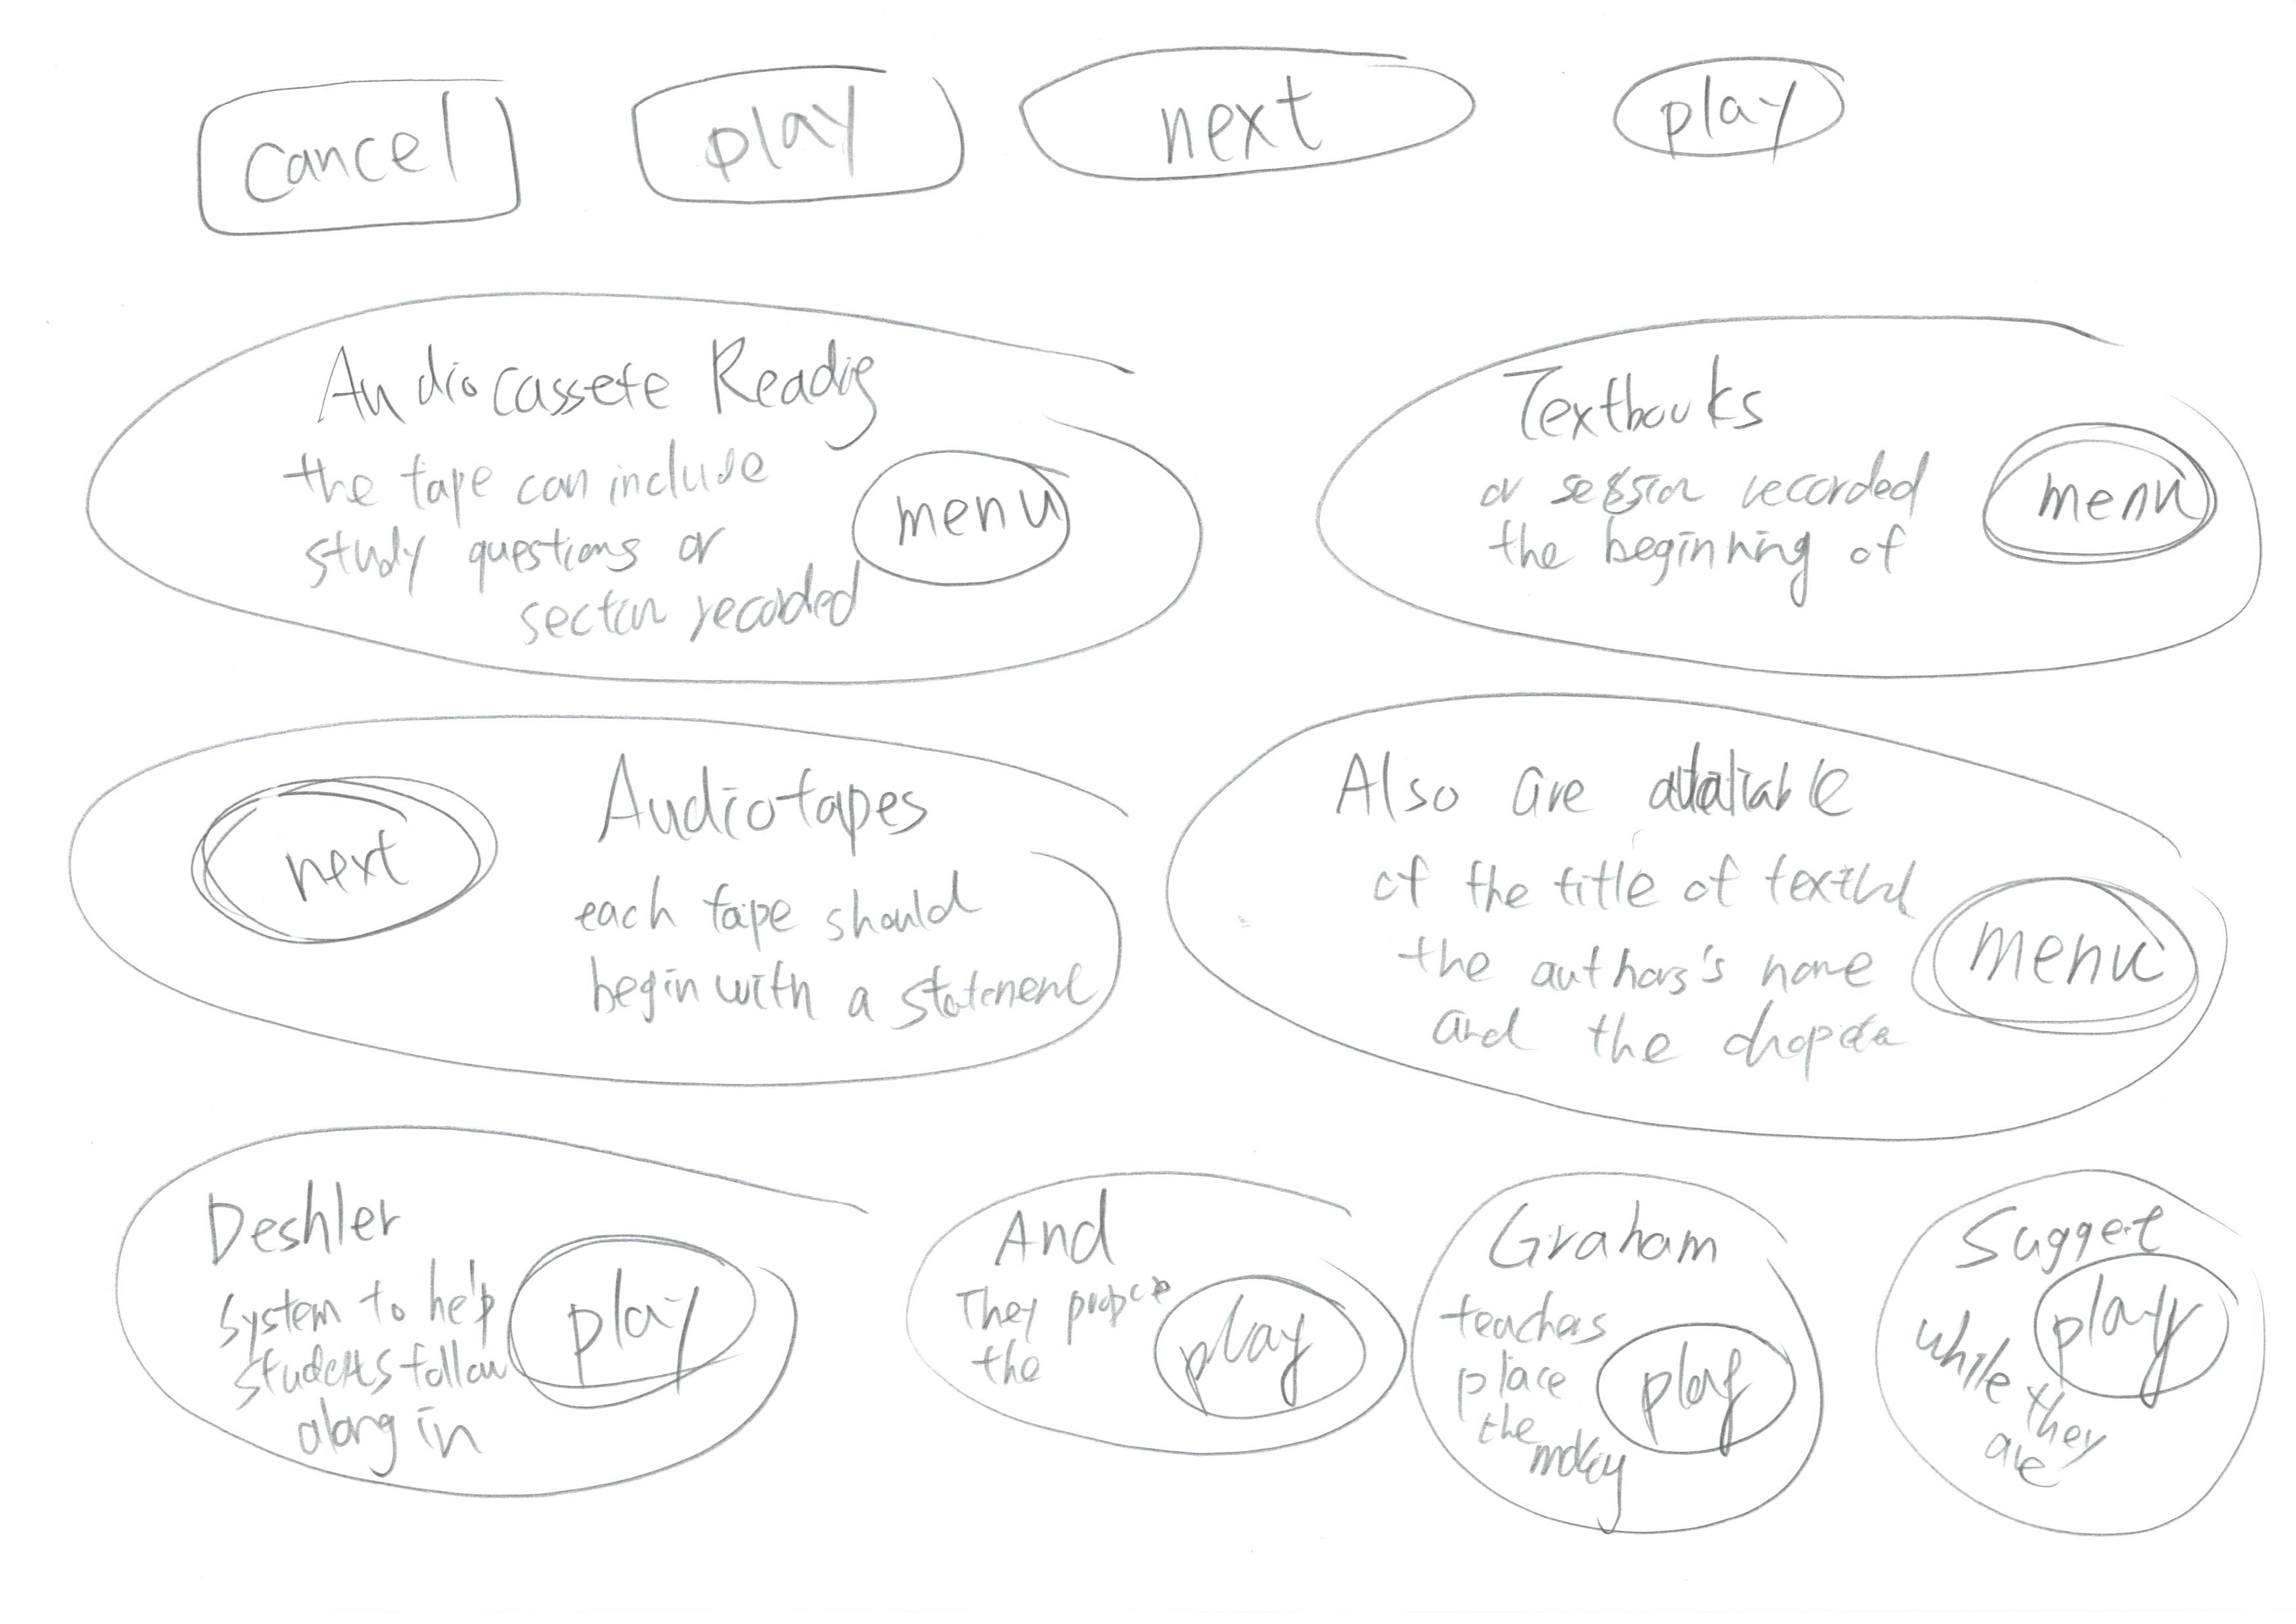 cancel
play
next
play
Audiocassete Readig
the tape can include
study questions or
section recorded
menu
Textbooks
or session recorded
the beginning of
menu
next
Audiotapes
each tape should
begin with a statement
Also are
of the title of
the authors's name
and the
menu
Deshler
system to help
students follow
along in
play
And
They
the
play
Graham
teachers
place
the
play
Sugget
while they
are
play